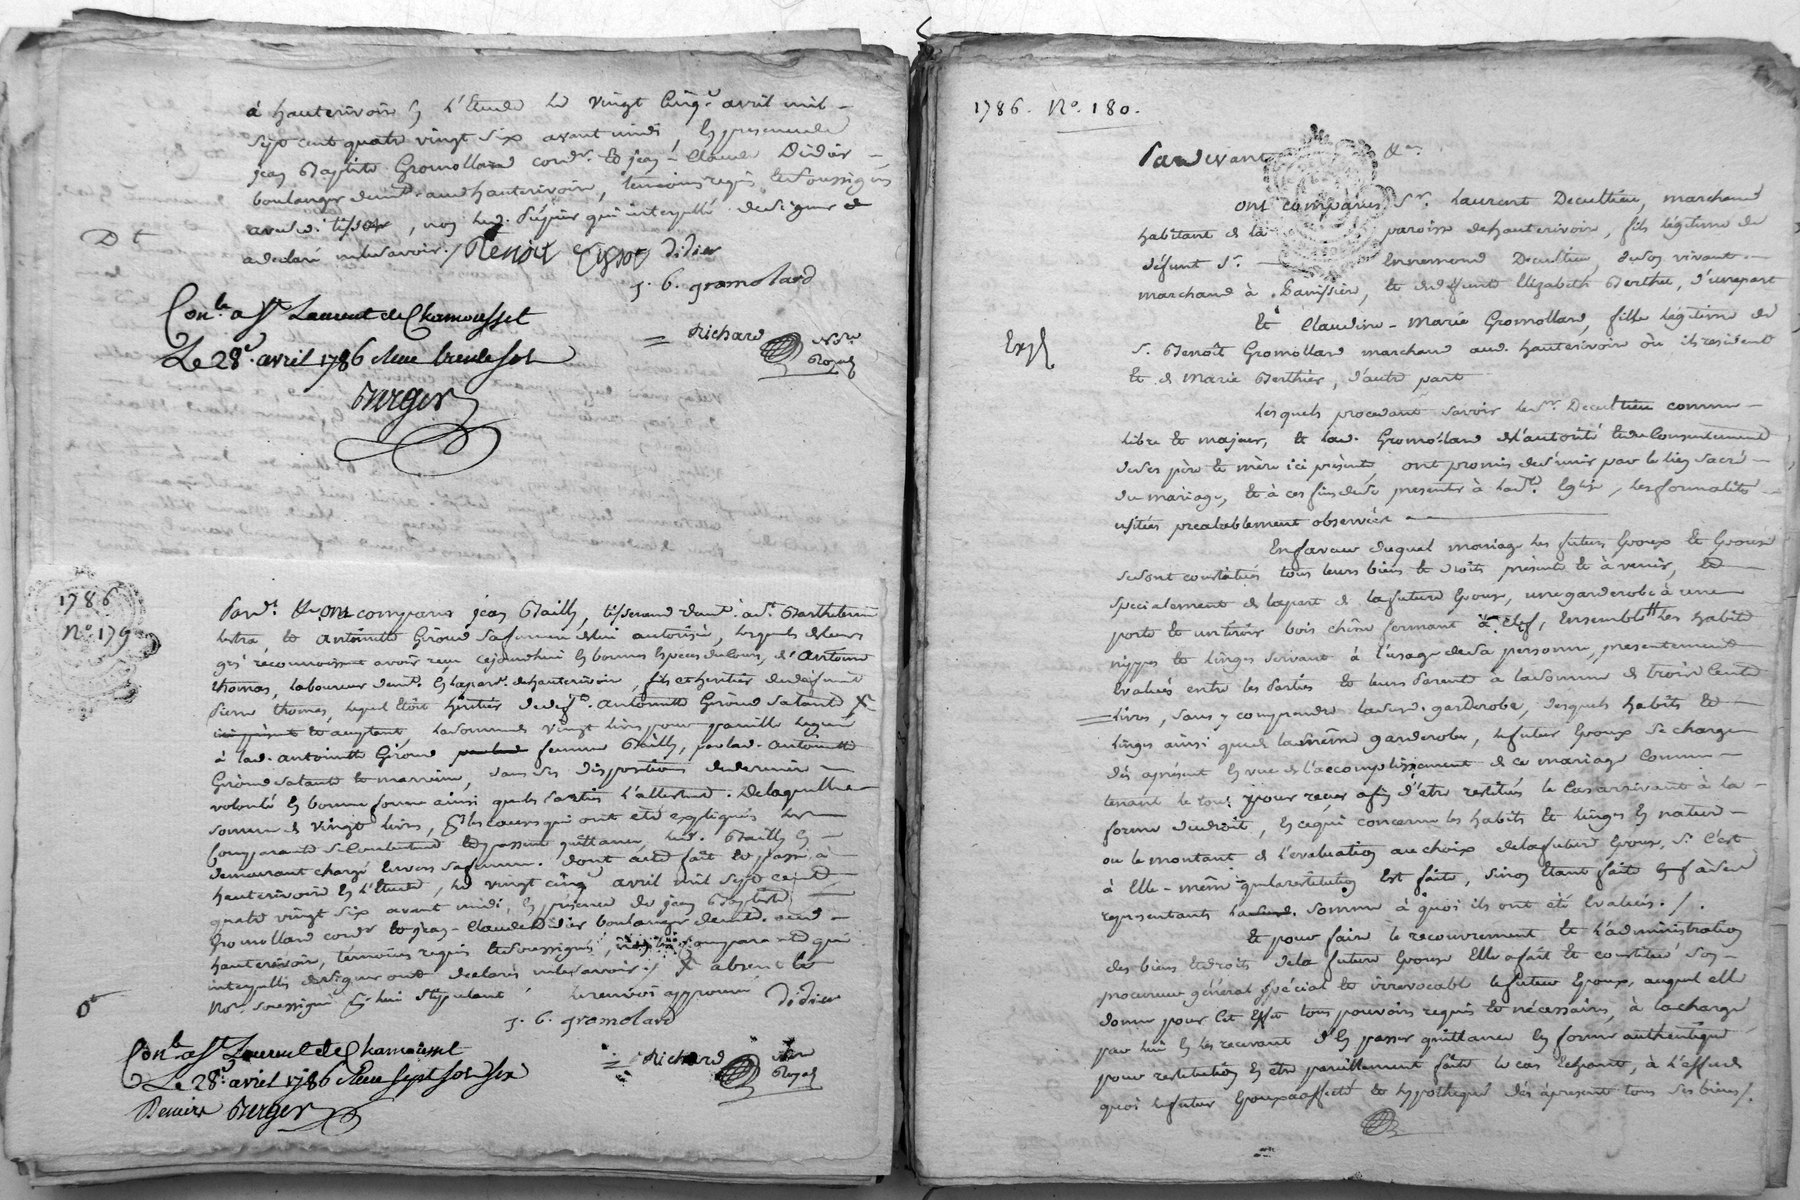 à hauterivoir en l'Etude le vingt cinq.e avril mil
sept cent quatre vingt six avant midi, en presence de
jean Baptiste Gromollard cond.r et jean-Claude Didier
boulanger dem.t aud hauterivoir, temoins requis et soussignés
avec led. tissot, non led. qui interpellé de signer
a declaré ne le savoir ./.
D t
Benoit tissot didier
J. B. gromolard
Con.le a S.t Laurent de Chamousset
Le 28.e avril 1786 Reçu trente sols
Berger
Richard N.re
Royal
1786
N.o 179
Pard.t &a ont comparus jean Bailly, tisserand dem.t à S.t Barthelemi
lestra, et antoinette Giroud sa femme de lui autorisée, lesquels de leurs
gré reconnoissent avoir reçu cejourdhui en bonnes especes de cours, d'antoine
thomas, laboureur dem.t en lad. par. de hauterivoir, fils et heritier de defunt
Pierre thomas, lequel etoit héritier de def.te antoinette Giroud sa tante X
et acceptant, la somme de vingt livres pour pareille leguée
à lad. antoinette Giroud femme Bailly, par lad. antoinette
Giroud sa tante et marreine, dans ses dispositions de derniere
volonté en bonne forme ainsi que les parties l'attestent. De laquelle
somme de vingt livres, les comparants se contentent et passent quittance, led. Bailly en
demeurant chargé envers sa femme. Dont acte fait et passé à
hauterivoir en l'Etude, le vingt cinq.e avril mil sept cent
quatre vingt six avant midi, en présence de jean Baptiste
Gromollard cond.r et jean-Claude Didier boulanger dem.t aud.
hauterivoir, témoins requis et soussignés, non les comparants qui
interpellés de signer ont declarés ne le savoir ./. X absent le
No.re soussigné pour lui stipulant
le renvoi approuvé didier
J. B. gromolard
Con.le a S.t Laurent de Chamousset
Le 28.e avril 1786 Reçu sept sols six
Deniers Berger
Richard N.re
Royal
1786. N.o 180.
Pardevant &a.
ont comparus S.r Laurent Decultieu, marchand
habitant de la paroisse de hauterivoir, fils légitime de
défunt S.r Ennemond Decultieu, de son vivant
marchand à Panissière, et de defunte Elizabeth Berthet, d'une part
Et Claudine-Marie Gromollard, fille légitime de
S. Benoît Gromollard marchand aud. hauterivoir où ils resident
et de Marie Berthier, d'autre part
Exp
Lesquels procedants savoir le S.r Decultieu comme
libre et majeur, et lad. Gromollard de l'autorité et du Consentement
de ses père et mère ici présents, ont promis de s'unir par le lien sacré
du mariage, et à ces fins de se presenter à lad.e Eglise, les formalités
usitées prealablement observées
En faveur duquel mariage les futurs Epoux et Epouse
se sont constitués tous leurs biens et droits présents et à venir, et
specialement de la part de la future Epouse, une garderobe à une
porte et un tiroir bois chêne fermant à clef, Ensemble les habits
nippes et linges servant à l'usage de sa personne, presentement
Evalués entre les Parties et leurs Parents à la somme de trois cents
livres, sans y comprendre lad. garderobe, desquels habits et
linges ainsi que de la même garderobe, le futur Epoux se charge
dès apresent en vue de l'accomplissement de ce mariage comme
tenant le tout pour reçu afin d'être restitués le cas arrivant à la
forme du droit, en ce qui concerne les habits et linges en nature
ou le montant de l'evaluation au choix de la future Epouse, si c'est
à Elle-même que la restitution Est faite, sinon etant faite
representants somme à quoi ils ont été Evalués ./.
Et pour faire le recouvrement et l'administration
des biens et droits de la future Epouse Elle a fait et constitué son
procureur général spécial et irrevocable le futur Epoux, auquel elle
donne pour Cet Effet tous pouvoirs requis et nécessaires, à la charge
par lui en les recevant d'en passer quittance en forme authentique
pour restitution en être pareillement faite le cas Echeant, à l'effet de
quoi le futur Epoux affecte et hypothèque dès apresent tous ses biens ./.